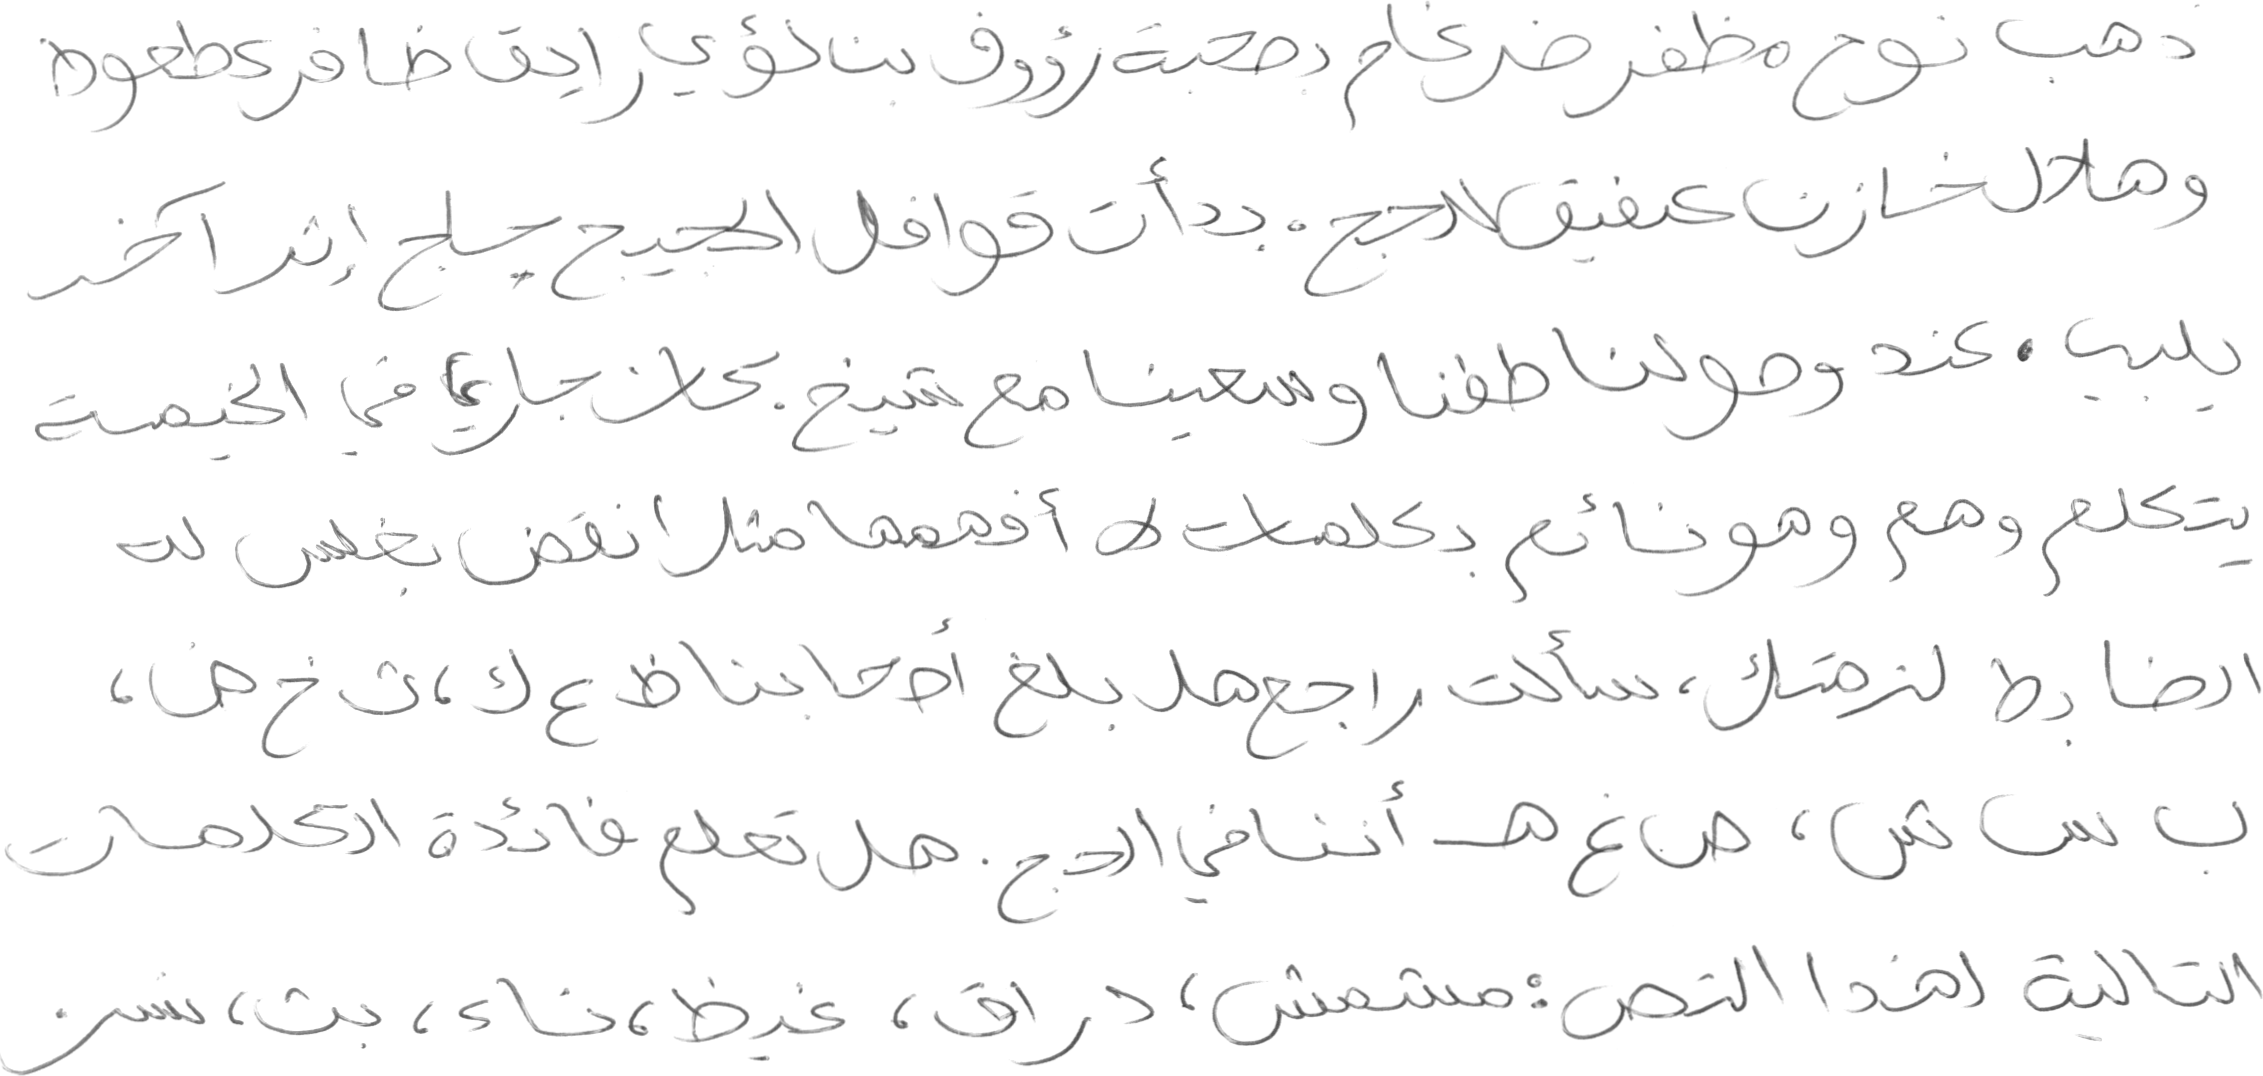 ذهب نوح مظفر ضرغام بصحبة رؤوف بن لؤي رايق ظافر عطعوط
وهلال خازن عفيف للحج. بدأت قوافل الحجيج بحلج إثر آخر
يلبي. عند وصولنا طفنا وسعينا مع شيخ. كان جاري في الخيمة
يتكلم وهم وهو نائم بكلمات لا أفهمها مثلا نقض بخلس لت
الضابط لزمتك، سألت راجح هل بلغ أصحابنا ظ ع ك، ث خ ض،
ب س ش، ص غ هـ أننا في الحج. هل تعلم فائدة الكلمات
التالية لهذا النص: مشمش، دراق، غيظ، ناء، بث، نسر